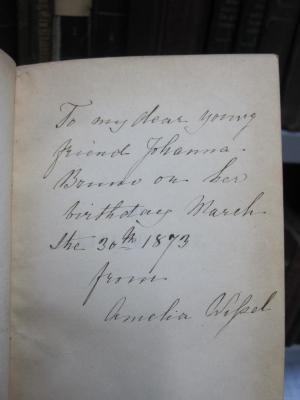 To my dear young
friend Johanna
Bonno on her
birthday March
the 30th 1873
from
Amelia Wissel